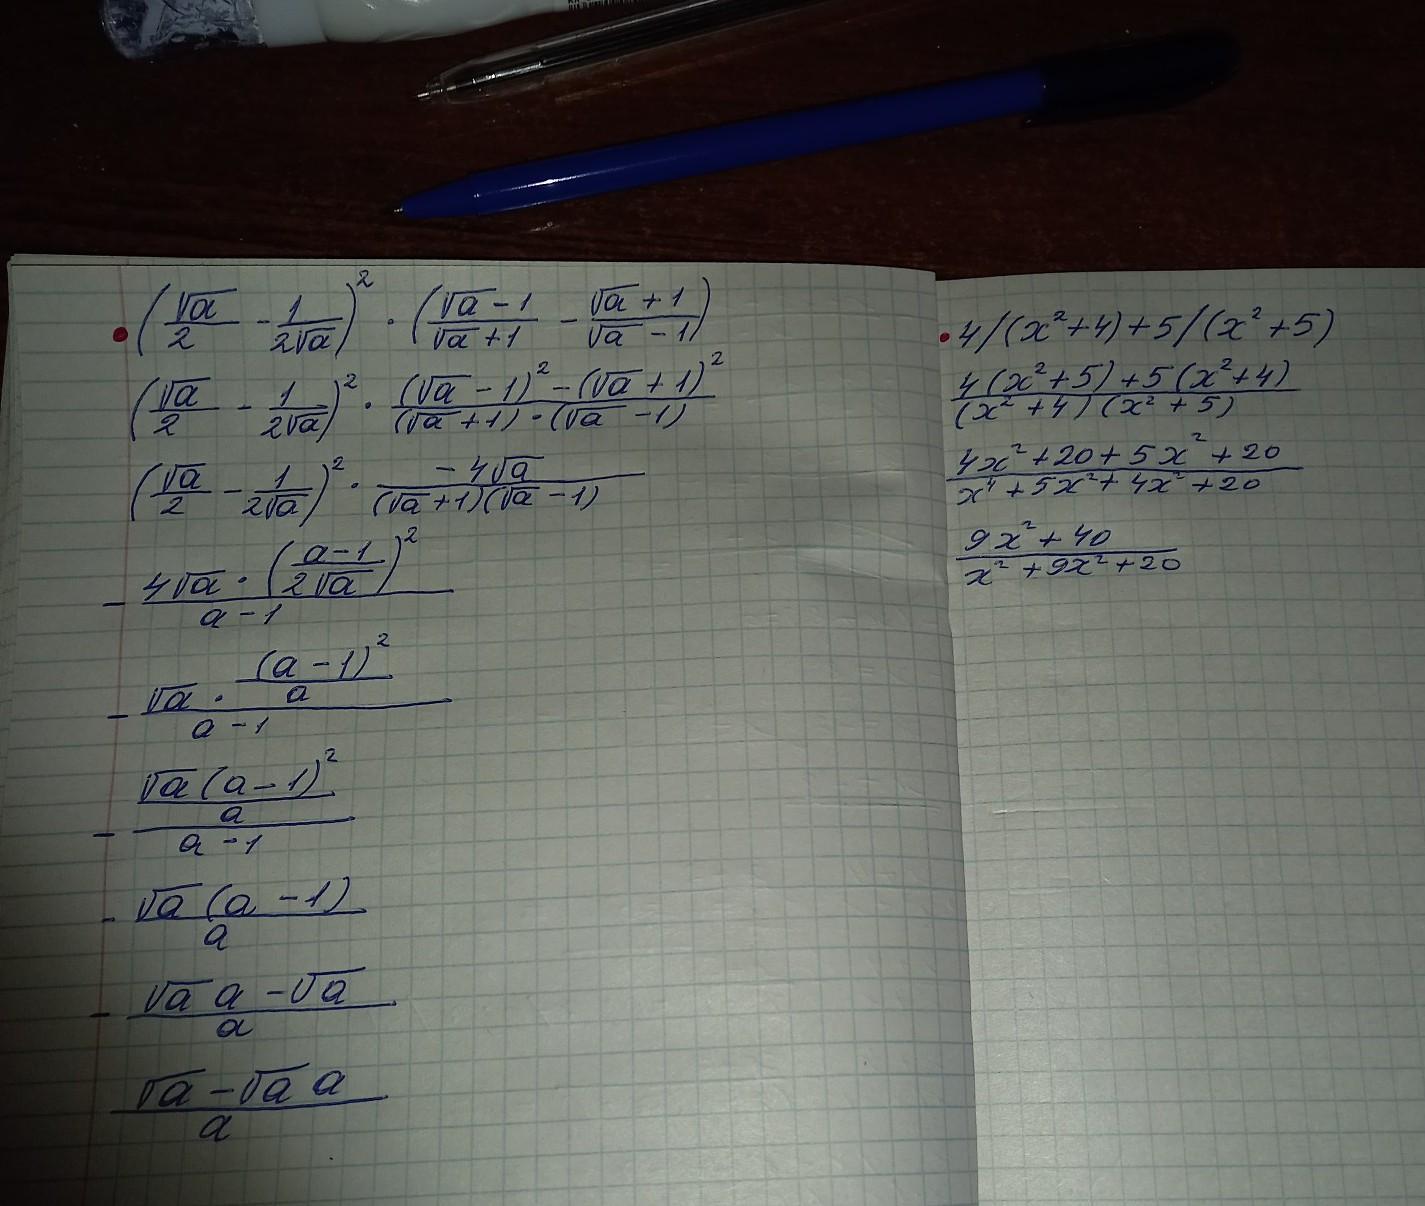 (√a/2 - 1/2√a)² · (√a - 1/√a + 1 - √a + 1/√a - 1)
(√a/2 - 1/2√a)² · (√a - 1)² - (√a + 1)²/(√a + 1) · (√a - 1)
(√a/2 - 1/2√a)² · -4√a/(√a + 1)(√a - 1)
- 4√a · (a - 1/2√a)²/a - 1
- √a · (a - 1)²/a/a - 1
- √a (a - 1)²/a/a - 1
- √a (a - 1)/a
- √a a - √a/a
√a - √a a/a
4/(x² + 4) + 5/(x² + 5)
4(x² + 5) + 5(x² + 4)/(x² + 4)(x² + 5)
4x² + 20 + 5x² + 20/x⁴ + 5x² + 4x² + 20
9x² + 40/x² + 9x² + 20